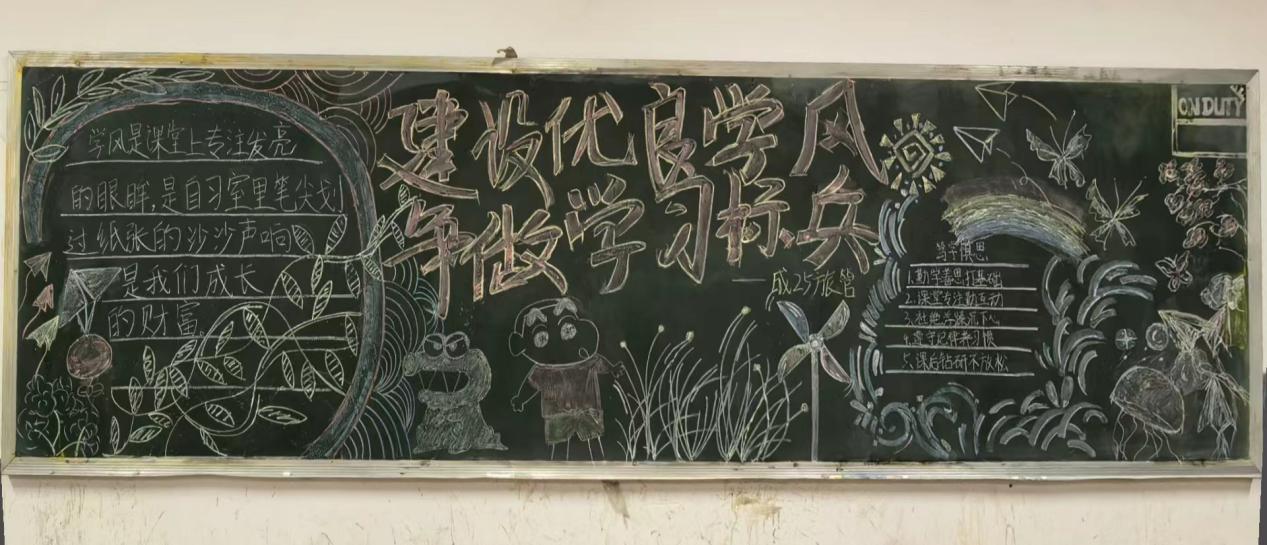 学风是课堂上专注发亮
的眼眸,是自习室里笔尖划
过纸张的沙沙声响
是我们成长
的财富
建设优良学风
争做学习标兵
——成25旅管
ON DUTY
笃学慎思
1.勤学善思打基础
2.课堂专注勤互动
3.杜绝浮躁沉下心
4.遵守纪律养习惯
5.课后钻研不放松